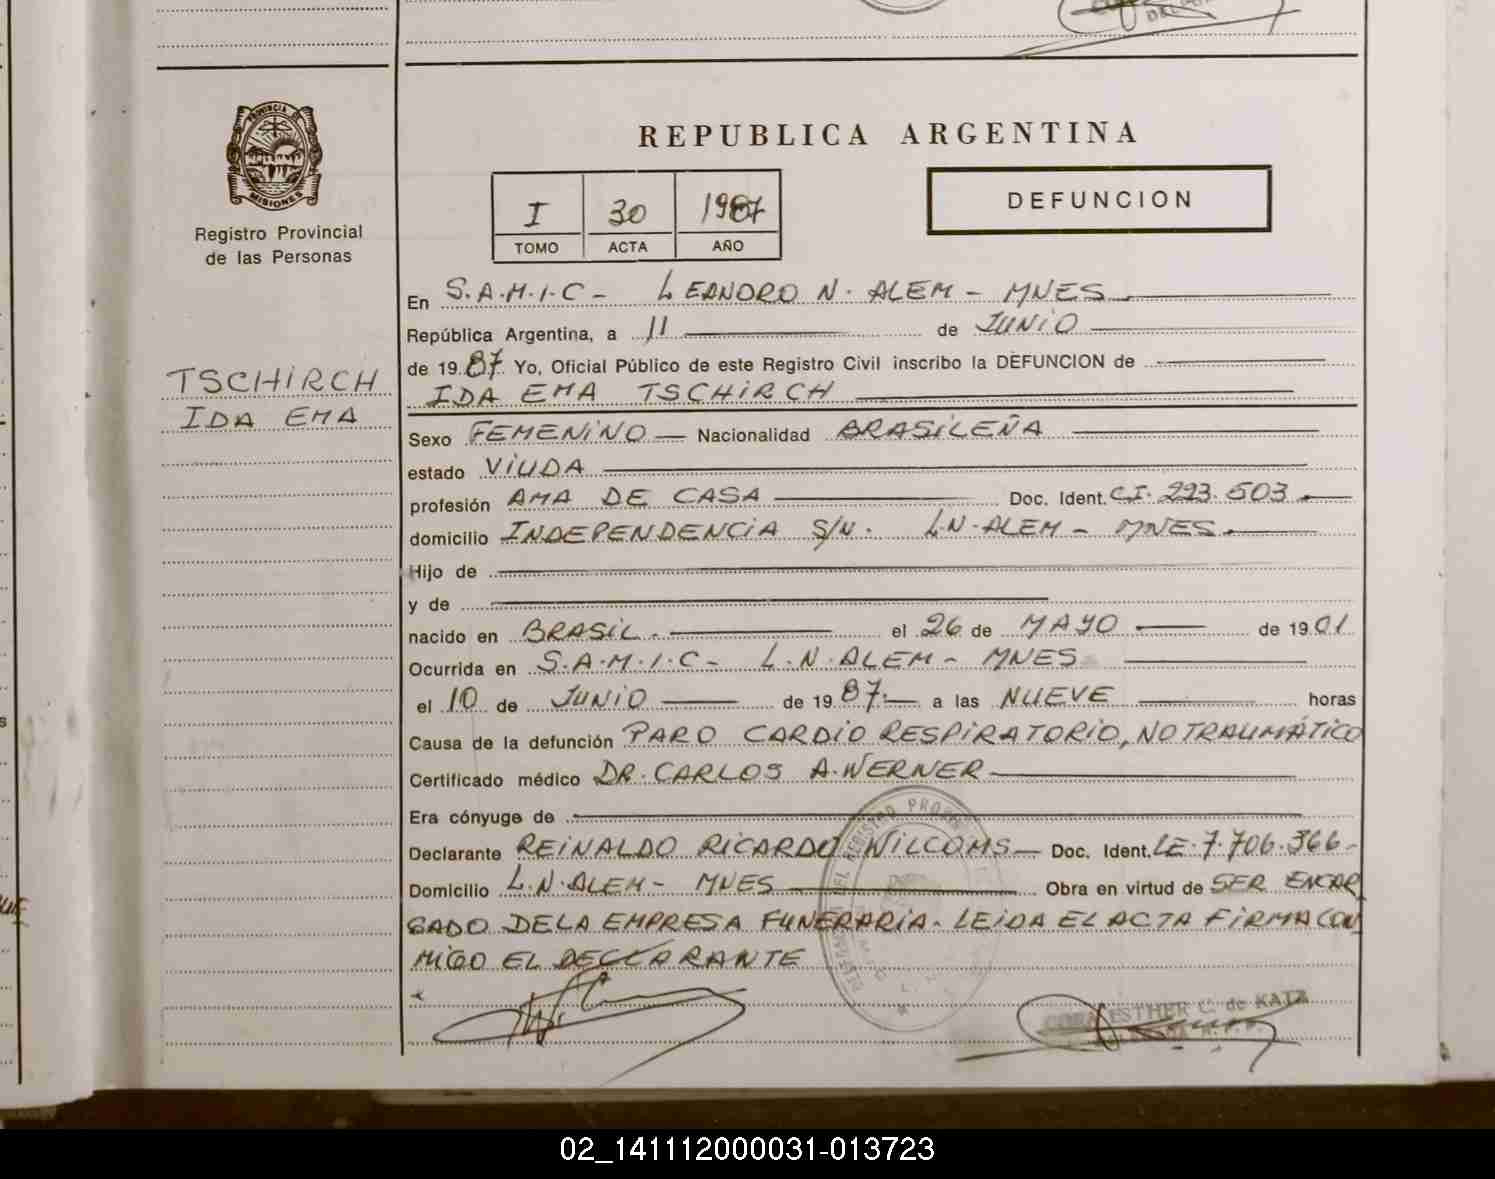 PROVINCIA
MISIONES
Registro Provincial
de las Personas
TSCHIRCH
IDA EMA
REPUBLICA ARGENTINA
I 30 1987
TOMO ACTA AÑO
DEFUNCION
En S.A.M.I.C - LEANDRO N. ALEM - MNES
República Argentina, a 11 de JUNIO
de 1987 Yo, Oficial Público de este Registro Civil inscribo la DEFUNCION de
IDA EMA TSCHIRCH
Sexo FEMENINO Nacionalidad BRASILEÑA
estado VIUDA
profesión AMA DE CASA Doc. Ident. C.I. 293.503
domicilio INDEPENDENCIA S/N. L.N.ALEM - MNES.
Hijo de
y de
nacido en BRASIL. el 26 de MAYO de 1901
Ocurrida en S.A.M.I.C - L.N.ALEM - MNES
el 10 de JUNIO de 1987. a las NUEVE horas
Causa de la defunción PARO CARDIO RESPIRATORIO, NO TRAUMÁTICO
Certificado médico DR. CARLOS A. WERNER
Era cónyuge de
Declarante REINALDO RICARDO WILCOMS Doc. Ident. LE.7.706.366-
Domicilio L.N.ALEM - MNES Obra en virtud de SER ENCAR
GADO DE LA EMPRESA FUNERARIA. LEIDA EL ACTA FIRMA CON
MIGO EL DECLARANTE
ESTHER C. de KATZ
02_141112000031-013723